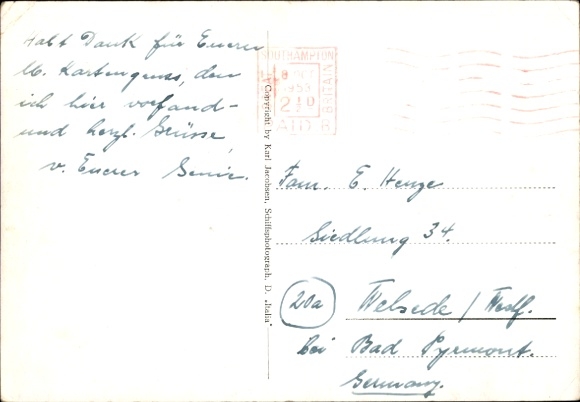 Habt Dank für Eueren
lb. Kartengruss, den
ich hier vorfand –
und herzl. Grüsse,
v. Euerer
SOUTHAMPTON
8
1953
2½D
PAID
BRITAIN
Copyright by Karl Jacobsen, Schiffsphotograph, D. „Italia"
Fam. E. Henze
Siedlung 34.
20a Welsede / Westf.
bei Bad Pyrmont.
Germany.